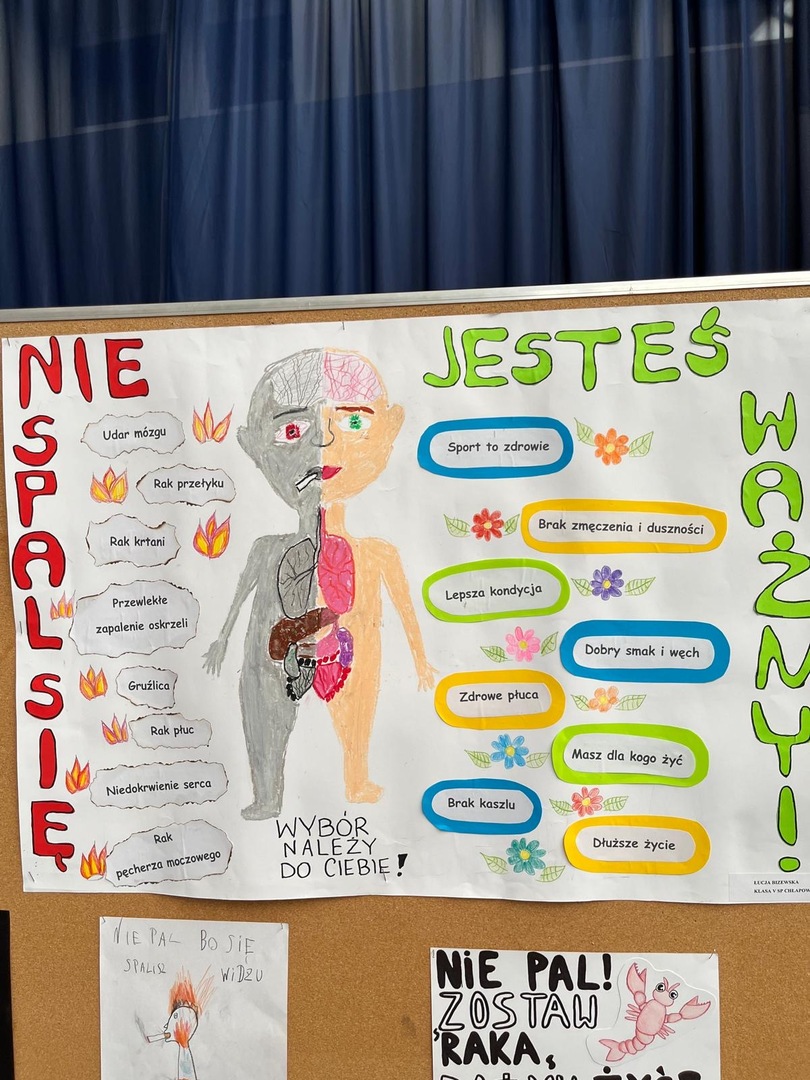 NIE
SPAL SIĘ
JESTEŚ
WAŻNY!
Udar mózgu
Rak przełyku
Rak krtani
Przewlekłe
zapalenie oskrzeli
Gruźlica
Rak płuc
Niedokrwienie serca
Rak
pęcherza moczowego
Sport to zdrowie
Brak zmęczenia i duszności
Lepsza kondycja
Dobry smak i węch
Zdrowe płuca
Masz dla kogo żyć
Brak kaszlu
Dłuższe życie
WYBÓR
NALEŻY
DO CIEBIE!
ŁUCJA BIZEWSKA
KLASA V SP
NIE PAL BO SIĘ
SPALISZ WIDZU
NIE PAL!
ZOSTAW
RAKA,